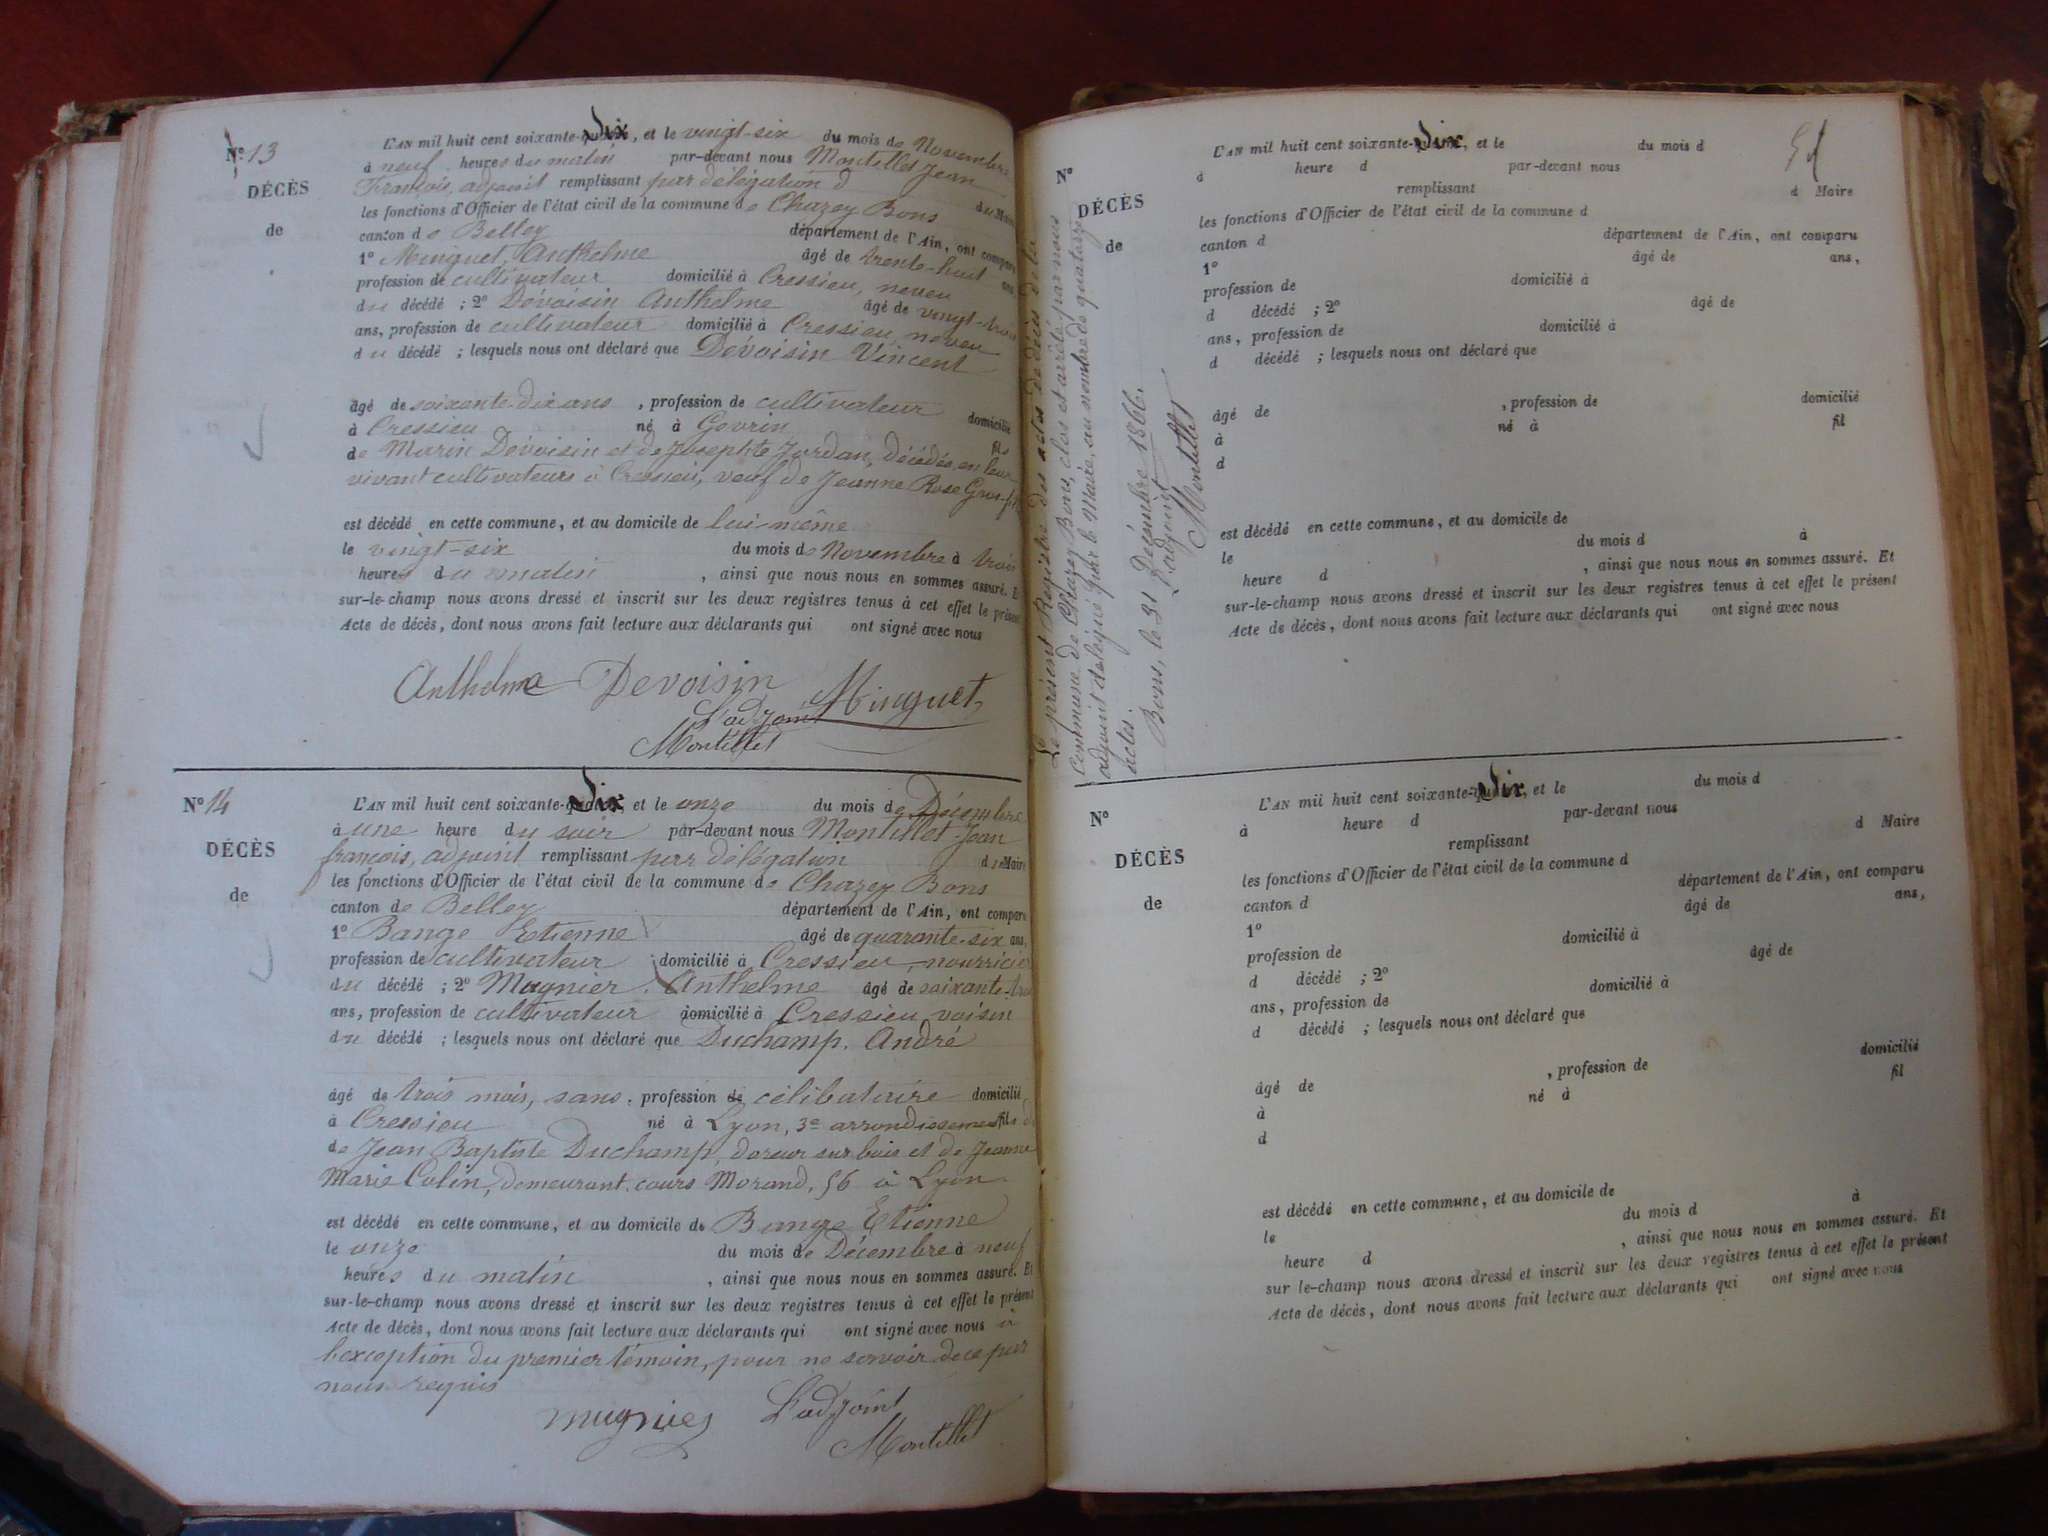 No 13
DÉCÈS
de
L'AN mil huit cent soixante-six, et le vingt-six du mois de Novembre
à neuf heures du matin par-devant nous Montillet Jean
François, adjoint remplissant par délégation d du Maire
les fonctions d'Officier de l'état civil de la commune de Chazey Bons
canton de Belley département de l'Ain, ont comparu
1º Minguet, Anthelme âgé de trente-huit ans
profession de cultivateur domicilié à Cressieu, neveu
du décédé ; 2º Devoisin Anthelme âgé de vingt-trois
ans, profession de cultivateur domicilié à Cressieu, neveu
du décédé ; lesquels nous ont déclaré que Devoisin Vincent
âgé de soixante-dix ans , profession de cultivateur domicilié
à Cressieu né à Govrin fils
de Marin Devoisin et de Josephte Jordan, décédés, en leur
vivant cultivateurs à Cressieu, veuf de Jeanne Rose
est décédé en cette commune, et au domicile de lui-même
le vingt-six du mois de Novembre à trois
heures du matin , ainsi que nous nous en sommes assuré. Et
sur-le-champ nous avons dressé et inscrit sur les deux registres tenus à cet effet le présent
Acte de décès, dont nous avons fait lecture aux déclarants qui ont signé avec nous
Anthelme Devoisin Minguet
L'adjoint
Montillet
No 14
DÉCÈS
de
L'AN mil huit cent soixante-six et le onze du mois de Décembre
à une heure du soir par-devant nous Montillet Jean
françois, adjoint remplissant par délégation du Maire
les fonctions d'Officier de l'état civil de la commune de Chazey Bons
canton de Belley département de l'Ain, ont comparu
1º Bange Etienne âgé de quarante-six ans,
profession de cultivateur domicilié à Cressieu, nourricier
du décédé ; 2º Mugnier Anthelme âgé de soixante-trois
ans, profession de cultivateur domicilié à Cressieu, voisin
du décédé ; lesquels nous ont déclaré que Duchamp. André
âgé de trois mois, sans profession de célibataire domicilié
à Cressieu né à Lyon, 3e arrondissement fils
de Jean Baptiste Duchamp, doreur sur bois et de Jeanne
Marie Colin, demeurant cours Morand, 56 à Lyon
est décédé en cette commune, et au domicile de Bange Etienne
le onze du mois de Décembre à neuf
heures du matin , ainsi que nous nous en sommes assuré. Et
sur-le-champ nous avons dressé et inscrit sur les deux registres tenus à cet effet le présent
Acte de décès, dont nous avons fait lecture aux déclarants qui ont signé avec nous à
l'exception du premier témoin, pour ne savoir de ce par
nous requis
mugnier L'adjoint
Montillet
Le présent Registre des actes de décès de la
Commune de Chazey Bons, clos et arrêté par nous
adjoint délégué par le Maire, au nombre de quatorze
actes.
Bons, le 31 Décembre 1866.
L'adjoint
Montillet
No
DÉCÈS
de
L'AN mil huit cent soixante-six, et le du mois d
à heure d par-devant nous
remplissant d Maire
les fonctions d'Officier de l'état civil de la commune d
canton d département de l'Ain, ont comparu
1º âgé de ans,
profession de domicilié à
d décédé ; 2º âgé de
ans, profession de domicilié à
d décédé ; lesquels nous ont déclaré que
âgé de , profession de domicilié
à né à fil
d
est décédé en cette commune, et au domicile de
le du mois d à
heure d , ainsi que nous nous en sommes assuré. Et
sur-le-champ nous avons dressé et inscrit sur les deux registres tenus à cet effet le présent
Acte de décès, dont nous avons fait lecture aux déclarants qui ont signé avec nous
No
DÉCÈS
de
L'AN mil huit cent soixante-six, et le du mois d
à heure d par-devant nous
remplissant d Maire
les fonctions d'Officier de l'état civil de la commune d
canton d département de l'Ain, ont comparu
1º âgé de ans,
profession de domicilié à
d décédé ; 2º âgé de
ans, profession de domicilié à
d décédé ; lesquels nous ont déclaré que
âgé de , profession de domicilié
à né à fil
d
est décédé en cette commune, et au domicile de
le du mois d à
heure d , ainsi que nous nous en sommes assuré. Et
sur le-champ nous avons dressé et inscrit sur les deux registres tenus à cet effet le présent
Acte de décès, dont nous avons fait lecture aux déclarants qui ont signé avec nous